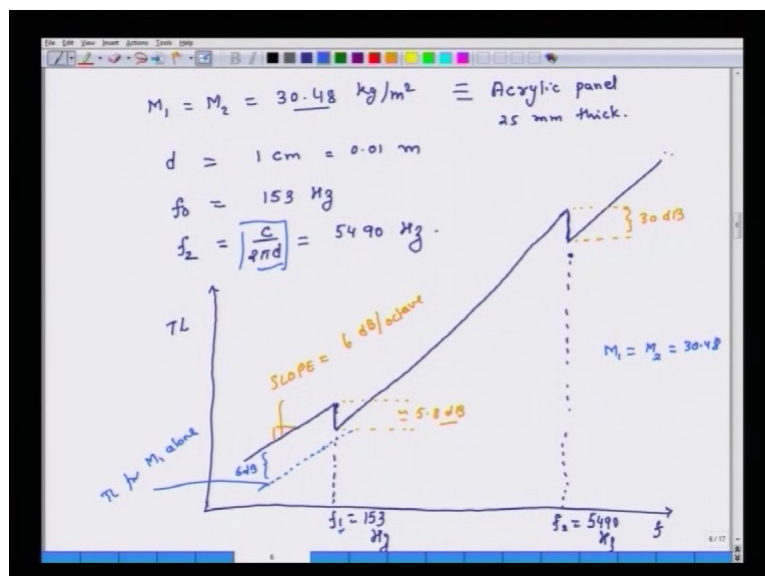 File Edit View Insert Actions Tools Help
M₁ = M₂ = 30.48 kg/m² ≡ Acrylic panel
25 mm thick.
d = 1 cm = 0.01 m
f₀ = 153 Hz
f₂ = c/2πd = 5490 Hz.
30 dB
TL
SLOPE = 6 dB/octave
M₁ = M₂ = 30.48
≈ 5.8 dB
6dB
TL for M₁ alone
f₁ = 153 Hz
f₂ = 5490 Hz
f
6/17
6